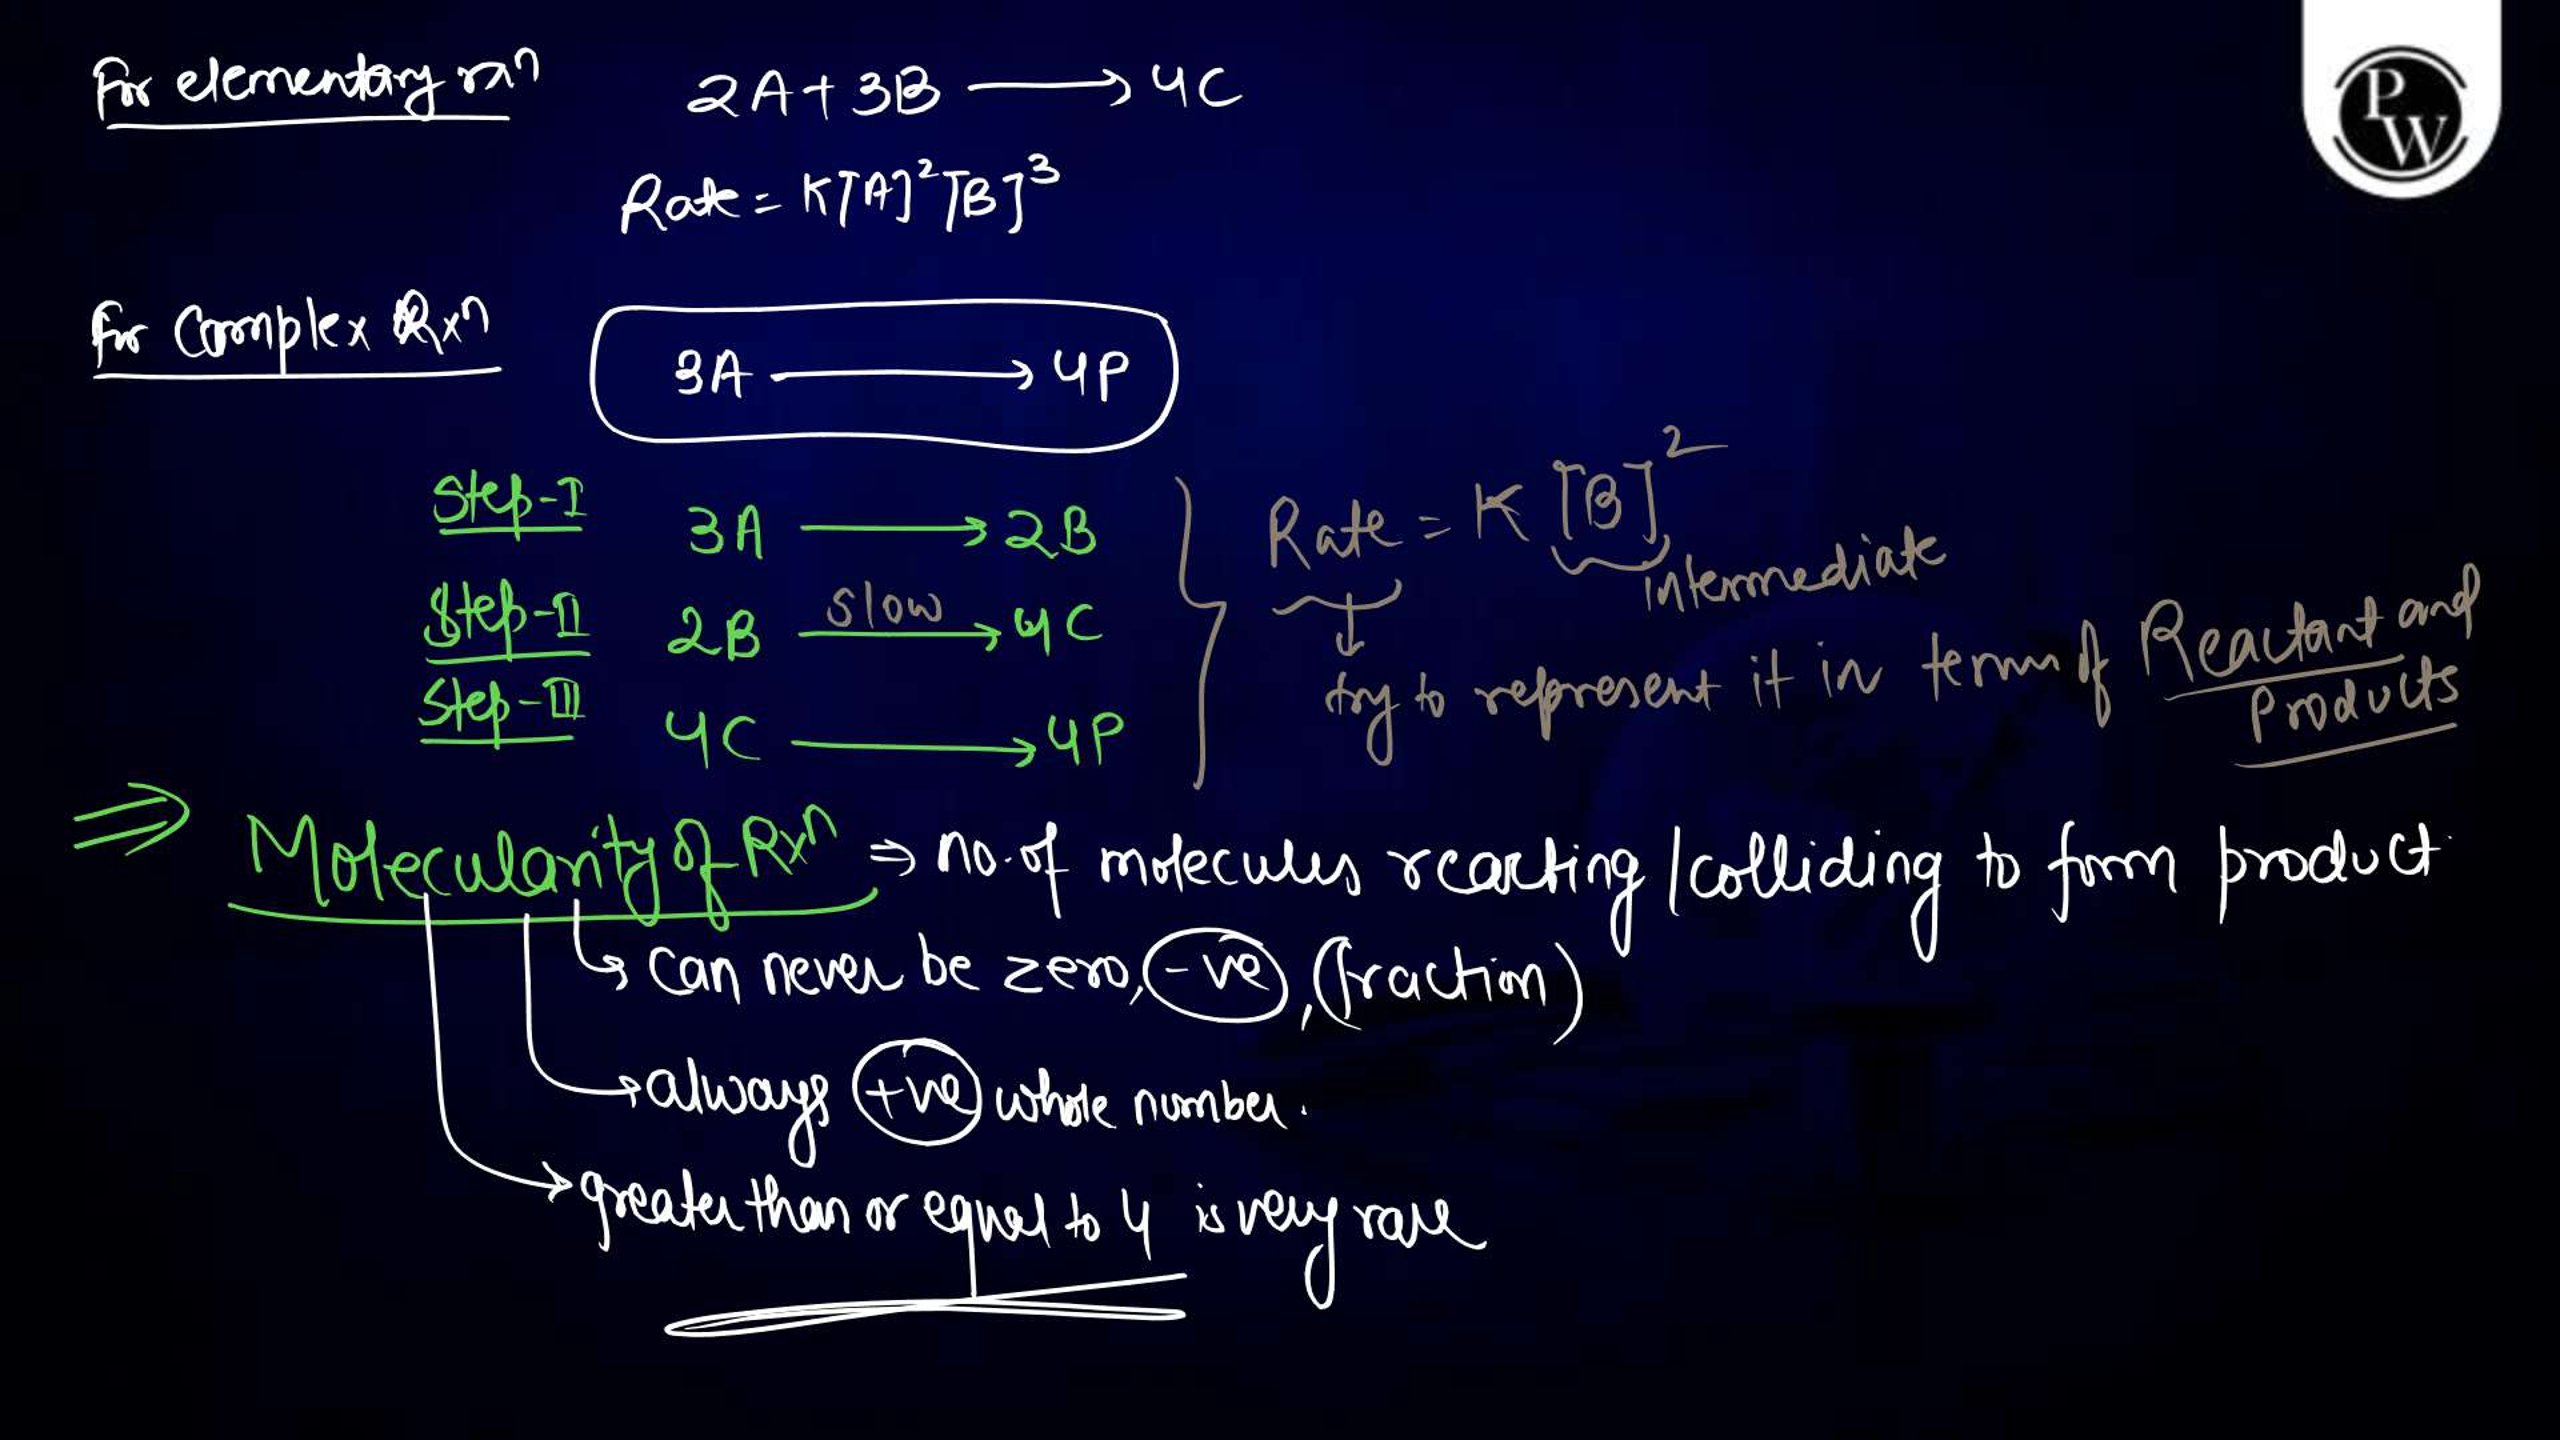 For elementary rxⁿ
2A + 3B ⟶ 4C
Rate = K[A]²[B]³
For Complex Rxⁿ
3A ⟶ 4P
Step-I 3A ⟶ 2B
Step-II 2B slow⟶ 4C
Step-III 4C ⟶ 4P
Rate = K [B]²
intermediate
try to represent it in term of Reactant and
Products
⇒ Molecularity of Rxⁿ ⇒ no. of molecules reacting / colliding to form product
↳ can never be zero, -ve, (fraction)
→ always +ve whole number.
→ greater than or equal to 4 is very rare
PW